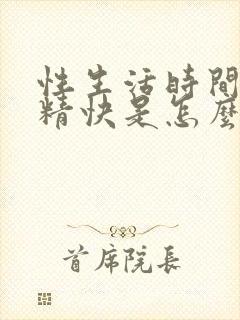 性生活時間
精快是怎麼
首席院長